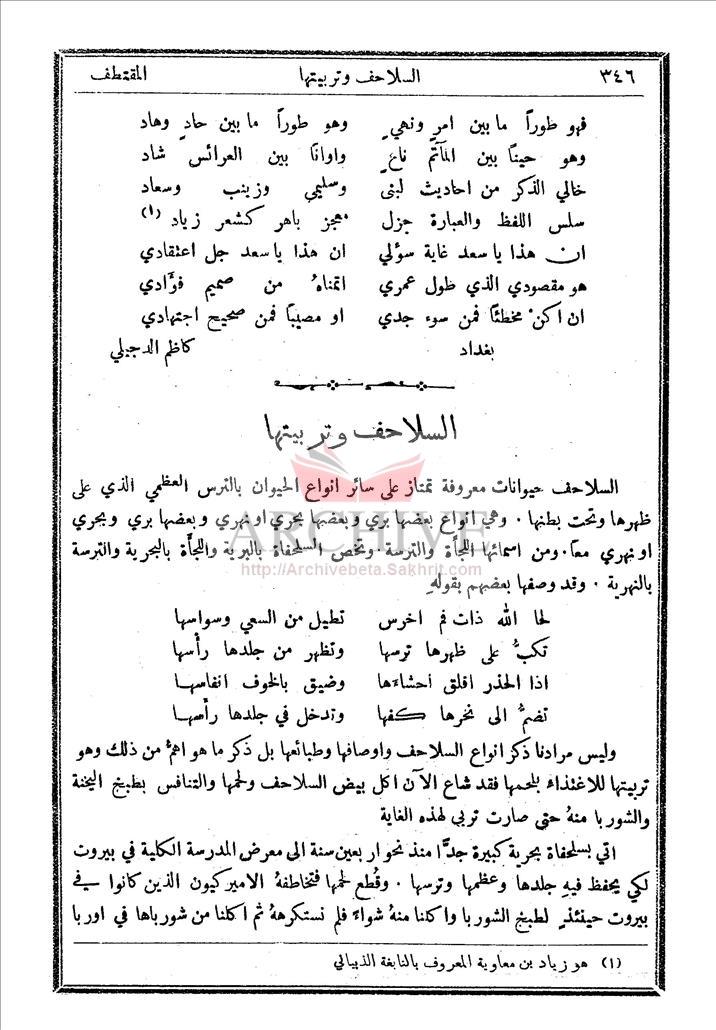 ٣٤٦ السلاحف وتربيتها المقتطف
فهو طوراً ما بين امرٍ ونهيٍ وهو طوراً ما بين حادٍ وهاد
وهو حيناً بين المآتم ناعٍ واوانًا بين العرائس شاد
خالي الذكر من احاديث لبنى وسليمى وزينب وسعاد
سلس اللفظ والعبارة جزل معجز باهر كشعر زياد (١)
ان هذا يا سعد غاية سؤلي ان هذا يا سعد جل اعتقادي
هو مقصودي الذي طول عمري اتمناهُ من صميم فؤادي
ان اكنْ مخطئًا فمن سوء جدي او مصيبًا فمن صحيح اجتهادي
بغداد كاظم الدجيلي
السلاحف وتربيتها
السلاحف حيوانات معروفة تمتاز على سائر انواع الحيوان بالترس العظمي الذي على
ظهرها وتحت بطنها . وهي انواع بعضها بري وبعضها بحري او نهري وبعضها بري وبحري
او نهري معاً . ومن اسمائها اللجأة والترسة . وتخص السلحفاة بالبرية واللجأة بالبحرية والترسة
بالنهرية . وقد وصفها بعضهم بقولهِ
لحا الله ذات فم اخرس تطيل من السعي وسواسها
تكبُّ على ظهرها ترسها وتظهر من جلدها رأسها
اذا الحذر اقلق احشاءَها وضيق بالخوف انفاسها
تضمُّ الى نحرها كفها وتدخل في جلدها رأسها
وليس مرادنا ذكر انواع السلاحف واوصافها وطبائعها بل ذكر ما هو اهمُّ من ذلك وهو
تربيتها للاغتذاء بلحمها فقد شاع الآن اكل بيض السلاحف ولحمها والتنافس بطبخ اليخنة
والشوربا منهُ حتى صارت تربى لهذه الغاية
اتي بسلحفاة بحرية كبيرة جدًّا منذ نحو اربعين سنة الى معرض المدرسة الكلية في بيروت
لكي يحفظ فيهِ جلدها وعظمها وترسها . وقُطع لحمها فتخاطفهُ الاميركيون الذين كانوا في
بيروت حينئذٍ لطبخ الشوربا واكلنا منهُ شواءً فلم نستكرههُ ثم اكلنا من شورباها في اوربا
(١) هو زياد بن معاوية المعروف بالنابغة الذبياني
ARCHIVE
http://Archivebeta.Sakhrit.com